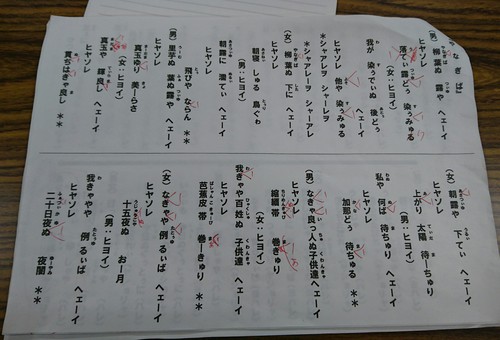 やなぎば
(男) 柳葉ぬ 露や ヘェーイ
ヒヤソレ
落てぃ 露どぅ 染ぅみゅる
(女:ヒヨイ)
我が 染ぅでぃぬ 後どぅ ヘェーイ
ヒヤソレ
他や 染ぅみゅる
＊シャアレーヲ シャーレヲ
シャアレーヲ シャーアレ
(女) 柳 葉ぬ 下に ヘェーイ
ヒヤソレ
朝寝 しゅる 鳥ぐゎ
(男:ヒヨイ)
朝露に 濡てぃ ヘェーイ
ヒヤソレ
飛びや ならん ＊＊
(男) 里芋ぬ 葉ぬ 露や ヘェーイ
ヒヤソレ
真玉ゆり 美ーらさ
(女:ヒヨイ)
真玉や 輝良し ヘェーイ
ヒヤソレ
真ちはきゃ良し ＊＊
(女) 朝露や 下てぃ ヘェーイ
ヒヤソレ
上がり 太陽 待ーちゅり
(男:ヒヨイ)
私や 何ば 待ちゅり ヘェーイ
ヒヤソレ
加那どぅ 待ちゅる ＊＊
(男) なきゃ良っ人ぬ子供達ヘェーイ
ヒヤソレ
縮緬帯 巻きゅり
(女:ヒヨイ)
我きゃや百姓ぬ 子供達ヘェーイ
ヒヤソレ
芭蕉皮 帯 巻ーきゅり ＊＊
(女) なきゃや 例るぃば ヘェーイ
ヒヤソレ
十五夜ぬ お一月
(男:ヒヨイ)
我きゃや 例るぃば ヘェーイ
ヒヤソレ
二十日夜ぬ 夜闇 ＊＊